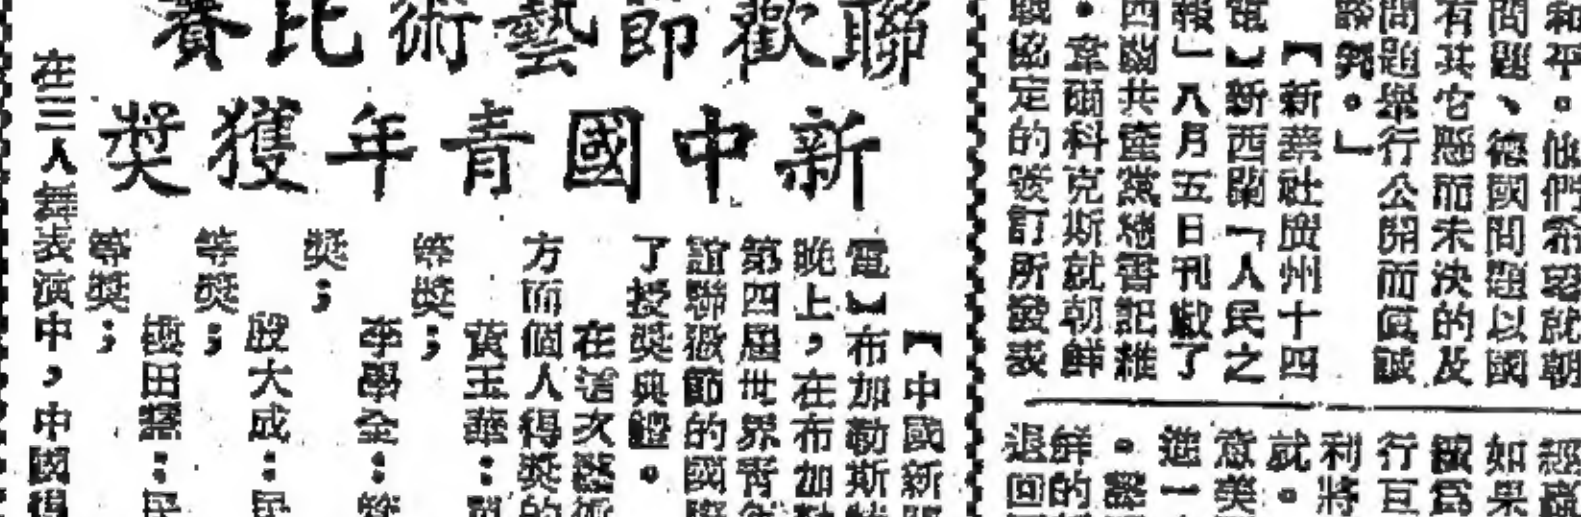 聯歡節藝術比賽
新中國青年獲獎
【中國新聞
電】布加勒斯特
晚上，在布加勒
第四屆世界青年
誼聯歡節的國際
了授獎典禮。
在這次藝術
方面個人得獎的
黃玉華：單
等獎；
李學全：管
獎；
殷大成：民
等獎；
田：民
等獎；
在三人舞表演中，中國得
和平。他們希望就朝
問題、德國問題以國
有其它懸而未決的及
問題舉行公開而真誠
談判。」
【新華社廣州十四
電】新西蘭「人民之
報」八月五日刊載了
西蘭共產黨總書記維
・韋爾科克斯就朝鮮
戰協定的簽訂所發表
如果
行互
利將
就。
意美
進一
鮮的
退回